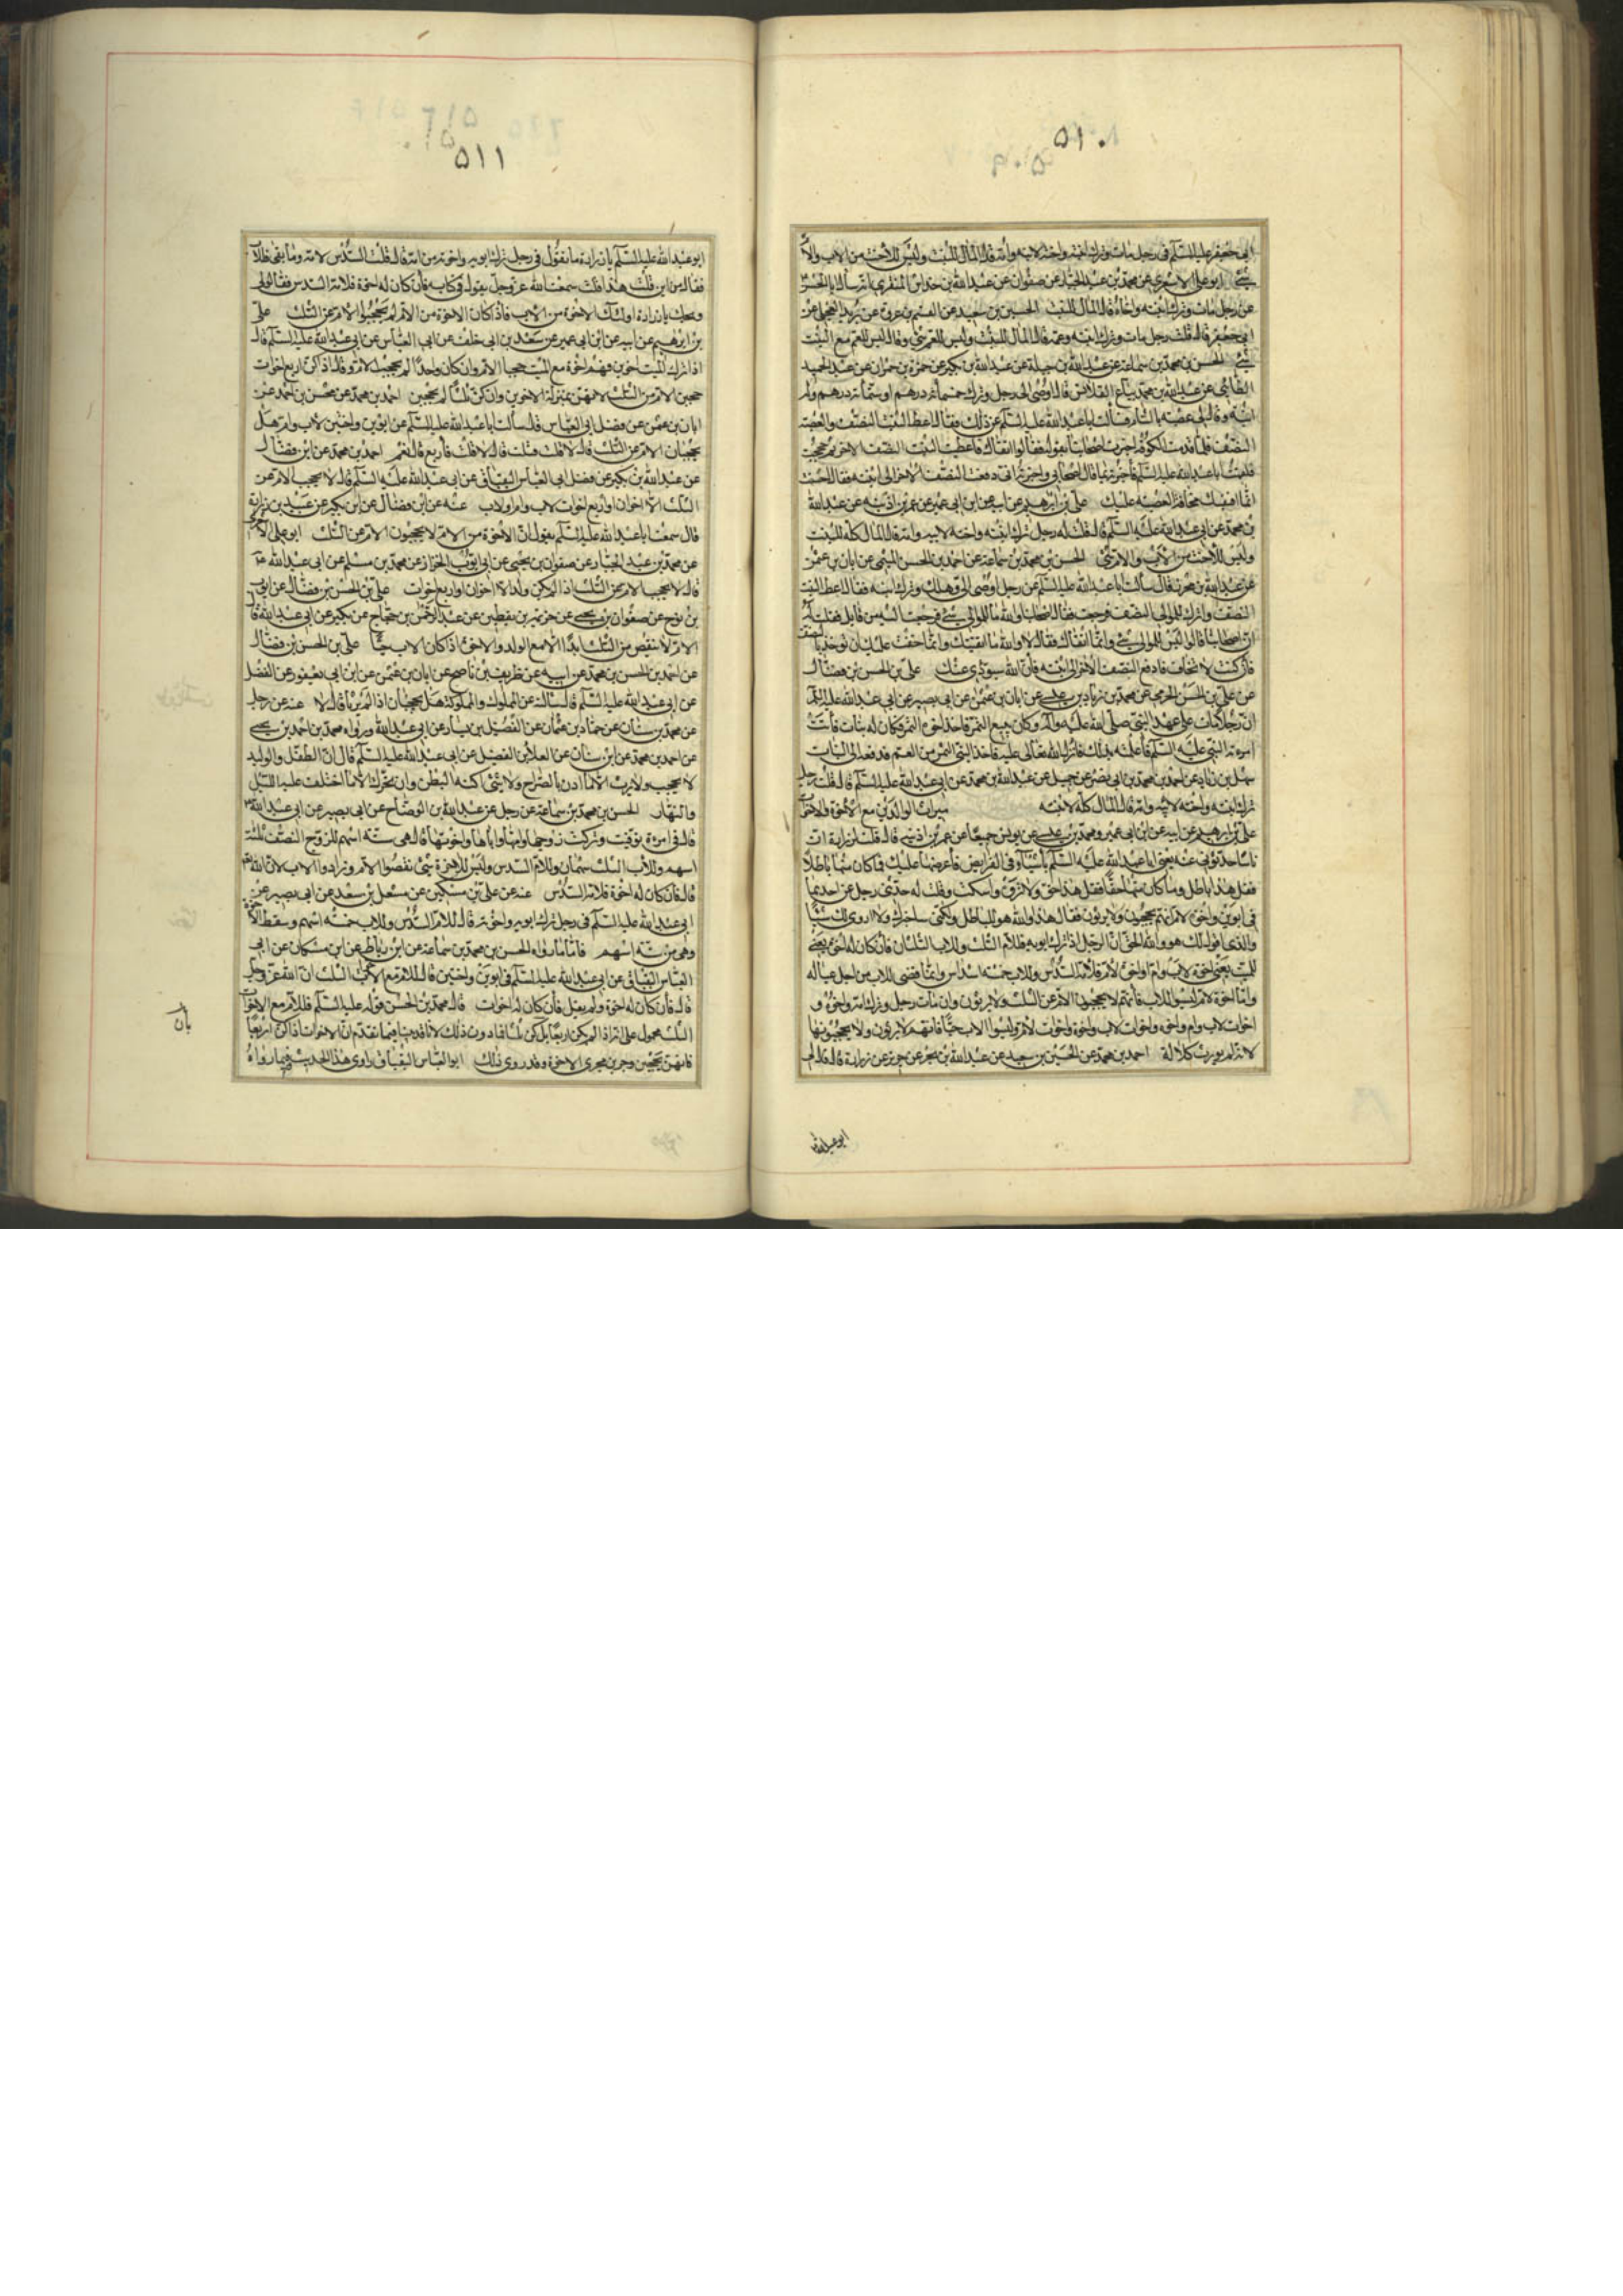 ٥١٠
٥٠٩
ابی جعفر علیه السلم فی رجل مات وترك ابنته واخته لابیه وامه قال المال للبنت ولیس للاخت من الاب والام
شئ ابو علی الاشعری عن محمد بن عبد الجبار عن صفوان عن عبد الله بن خداش المنقری انه سأل ابا الحسن
عن رجل مات وترك ابنته واخاه قال المال للبنت الحسین بن سعید عن القسم بن عروة عن برید العجلی عن
ابی جعفر قال قلت رجل مات وترك ابنته وعمه قال المال للبنت ولیس للعم شئ وقال لیس للعم مع البنت
شئ الحسن بن محمد بن سماعة عن عبد الله بن جبلة عن عبد الله بن بکیر عن حمزة بن حمران عن عبد الحمید
الطائی عن عبد الله بن محمد بیاع القلانس قال اوصی الی رجل وترك خمسمأته درهم او ستمأته درهم وترك
ابنته وقال لی عصبة بالشام فسألت ابا عبد الله علیه السلم عن ذلك فقال اعط البنت النصف والعصبة
النصف فلما قدمت الکوفة اخبرت اصحابنا بقوله فقالوا اتقاك فاعطیت البنت النصف الاخر ثم حججت
فلقیت ابا عبد الله علیه السلم فاخبرته بما قال اصحابی واخبرته انی دفعت النصف الاخر الی ابنته فقال احسنت
انما افتیتك مخافة العصبة علیك علی بن ابرهیم عن ابیه عن ابن ابی عمیر عن عمر بن اذینة عن عبد الله
بن محمد عن ابی عبد الله علیه السلم قال قلت له رجل ترك ابنته واخته لابیه وامه قال المال کله للبنت
ولیس للاخت من الاب والام شئ الحسن بن محمد بن سماعة عن احمد بن الحسن المیثمی عن ابان بن عثمن
عن عبد الله بن محرز قال سألت ابا عبد الله علیه السلم عن رجل اوصی الی وهلك وترك ابنته فقال اعط البنت
النصف واترك للموالی النصف فرجعت فقال اصحابنا والله ما للموالی شئ فرجعت الیه من قابل فقلت له
ان اصحابنا قالوا لیس للموالی شئ وانما اتقاك فقال لا والله ما اتقیتك وانما خفت علیك ان تؤخذ بالنصف
فان کنت لا تخاف فادفع النصف الاخر الی ابنته فان الله سیؤدی عنك علی بن الحسن بن فضال
عن علی بن الحسن الجرمی عن محمد بن زیاد بن عیسی عن ابان بن عثمن عن ابی بصیر عن ابی عبد الله علیه السلم
ان رجلا مات علی عهد النبی صلی الله علیه وآله وکان یبیع التمر فاخذ اخوه التمر وکان له بنات فاتت
امرءته النبی علیه السلم فاعلمته بذلك فانزل الله تعالی علیه فاخذ النبی التمر من العم فدفعه الی البنات
سهل بن زیاد عن احمد بن محمد بن ابی نصر عن جمیل عن عبد الله بن محمد عن ابی عبد الله علیه السلم قال قلت رجل
ترك ابنته واخته لابیه وامه قال المال کله لابنته میراث الوالدین مع الاخوة والاخوات
علی بن ابرهیم عن ابیه عن ابن ابی عمیر ومحمد بن عیسی عن یونس جمیعا عن عمر بن اذینة قال قلت لزرارة ان
ناسا حدثونی عنه یعنی ابا عبد الله علیه السلم باشیاء فی الفرایض فاعرضها علیك فما کان منها باطلا
فقل هذا باطل وما کان منها حقا فقل هذا حق ولا تروه واسکت وقلت له حدثنی رجل عن احدهما
فی ابوین واخوة لام انهم یحجبون ولا یرثون فقال هذا والله هو الباطل ولکنی ساخبرك ولا اروی لك شیئا
والذی اقول لك هو والله الحق ان الرجل اذا ترك ابویه فللام الثلث وللاب الثلثان فان کان له اخوة یعنی
للمیت یعنی اخوة لاب وام او اخوة لاب فلامه السدس وللاب خمسة اسداس وانما وفر للاب من اجل عیاله
واما اخوة لام لیسوا للاب فانهم لا یحجبون الام عن الثلث ولا یرثون وان مات رجل وترك امه واخوة و
اخوات لاب وام واخوة واخوات لاب واخوة واخوات لام ولیس الاب حیا فانهم لا یرثون ولا یحجبونها
لانه لم یورث کلالة احمد بن محمد عن الحسین بن سعید عن عبد الله بن بحر عن حریز عن زرارة قال قال لی
ابو عبد الله
٥١٢
٥١٠
٥١١
ابو عبد الله علیه السلم یا زرارة ما تقول فی رجل ترك ابویه واخوته من امه قال قلت السدس لامه وما بقی فللاب
فقال من این قلت هذا قلت سمعت الله عز وجل یقول فی کتابه فان کان له اخوة فلامه السدس فقال لی
ویحك یا زرارة اولئك الاخوة من الاب فاذا کان الاخوة من الام لم یحجبوا الام عن الثلث علی
بن ابرهیم عن ابیه عن ابن ابی عمیر عن سعد بن ابی خلف عن ابی العباس عن ابی عبد الله علیه السلم قال
اذا ترك المیت اخوین فهم اخوة مع المیت حجبا الام وان کان واحدا لم یحجب الام وقال اذا کن اربع اخوات
حجبن الام من الثلث لانهن بمنزلة الاخوین وان کن ثلثا لم یحجبن احمد بن محمد عن محسن بن احمد عن
ابان بن عثمن عن فضل ابی العباس قال سألت ابا عبد الله علیه السلم عن ابوین واختین لاب وام هل
یحجبان الام عن الثلث قال لا قلت فثلث قال لا قلت فاربع قال نعم احمد بن محمد عن ابن فضال
عن عبد الله بن بکیر عن فضل ابی العباس البقباق عن ابی عبد الله علیه السلم قال لا یحجب الام عن
الثلث الا اخوان او اربع اخوات لاب وام او لاب عنه عن ابن فضال عن ابن بکیر عن عبید بن زرارة
قال سمعت ابا عبد الله علیه السلم یقول ان الاخوة من الام لا یحجبون الام عن الثلث ابو علی الاشعری
عن محمد بن عبد الجبار عن صفوان بن یحیی عن ابی ایوب الخزاز عن محمد بن مسلم عن ابی عبد الله ع
قال لا یحجب الام عن الثلث اذا لم یکن ولد الا اخوان او اربع اخوات علی بن الحسن بن فضال عن ایوب
بن نوح عن صفوان بن یحیی عن خزیمة بن یقطین عن عبد الرحمن بن حجاج عن بکیر عن ابی عبد الله قال
الام لا تنقص من الثلث ابدا الا مع الولد والاخوة اذا کان الاب حیا علی بن الحسن بن فضال
عن احمد بن الحسن بن محمد عن ابیه عن ظریف بن ناصح عن ابان بن عثمن عن ابن ابی یعفور عن الفضل
عن ابی عبد الله علیه السلم قال سألته عن المملوك والمملوکة هل یحجبان اذا لم یرثا قال لا عنه عن رجل
عن محمد بن سنان عن حماد بن عثمان عن الفضیل بن یسار عن ابی عبد الله ورواه محمد بن احمد بن یحیی
عن احمد بن محمد عن ابن سنان عن العلا بن الفضیل عن ابی عبد الله علیه السلم قال ان الطفل والولید
لا یحجب ولا یرث الا ما اذن بالصراخ ولا شئ اکنه البطن وان تحرك الا ما اختلف علیه اللیل
والنهار الحسن بن محمد بن سماعة عن رجل عن عبد الله بن الوضاح عن ابی بصیر عن ابی عبد الله
قال فی امرءة توفیت وترکت زوجها وامها واباها واخوتها قال هی ستة اسهم للزوج النصف ثلثة
اسهم وللاب الثلث سهمان وللام السدس ولیس للاخوة شئ نقصوا الام وزادوا الاب لان الله تعالی
قال فان کان له اخوة فلامه السدس عنه عن علی بن سکین عن مشمعل بن سعد عن ابی بصیر عن
ابی عبد الله علیه السلم فی رجل ترك ابویه واخوته قال للام السدس وللاب خمسة اسهم وسقط الاخوة
وهی من ستة اسهم فاما ما رواه الحسن بن محمد بن سماعة عن ابن رباط عن ابن مسکان عن ابی
العباس البقباق عن ابی عبد الله علیه السلم فی ابوین واختین قال للام مع الاخوات الثلث ان الله عز وجل
قال فان کان له اخوة ولم یقل فان کان له اخوات قال محمد بن الحسن قوله علیه السلم فللام مع الاخوات
الثلث محمول علی انه اذا لم یکن اربعا بل کن ثلثا فما دون ذلك لانا قد بینا فیما تقدم ان الاخوات اذا کن اربعا
فانهن یحجبن وجرین مجری الاخوة وقد روی ذلك ابو العباس البقباق راوی هذا الحدیث فیما رواه
بان